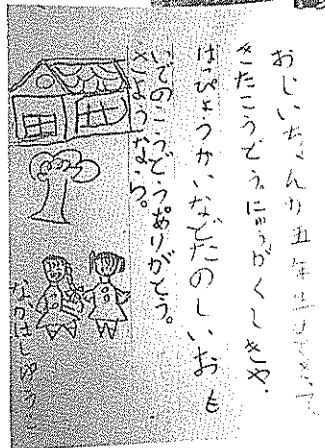 おじいちゃんが五年生まできて
きたこうどう。にゅうがくしきや、
はっぴょうかいなどたのしいおも
いでのこうどうありがとう。
さようなら。
なかはしゆうこ